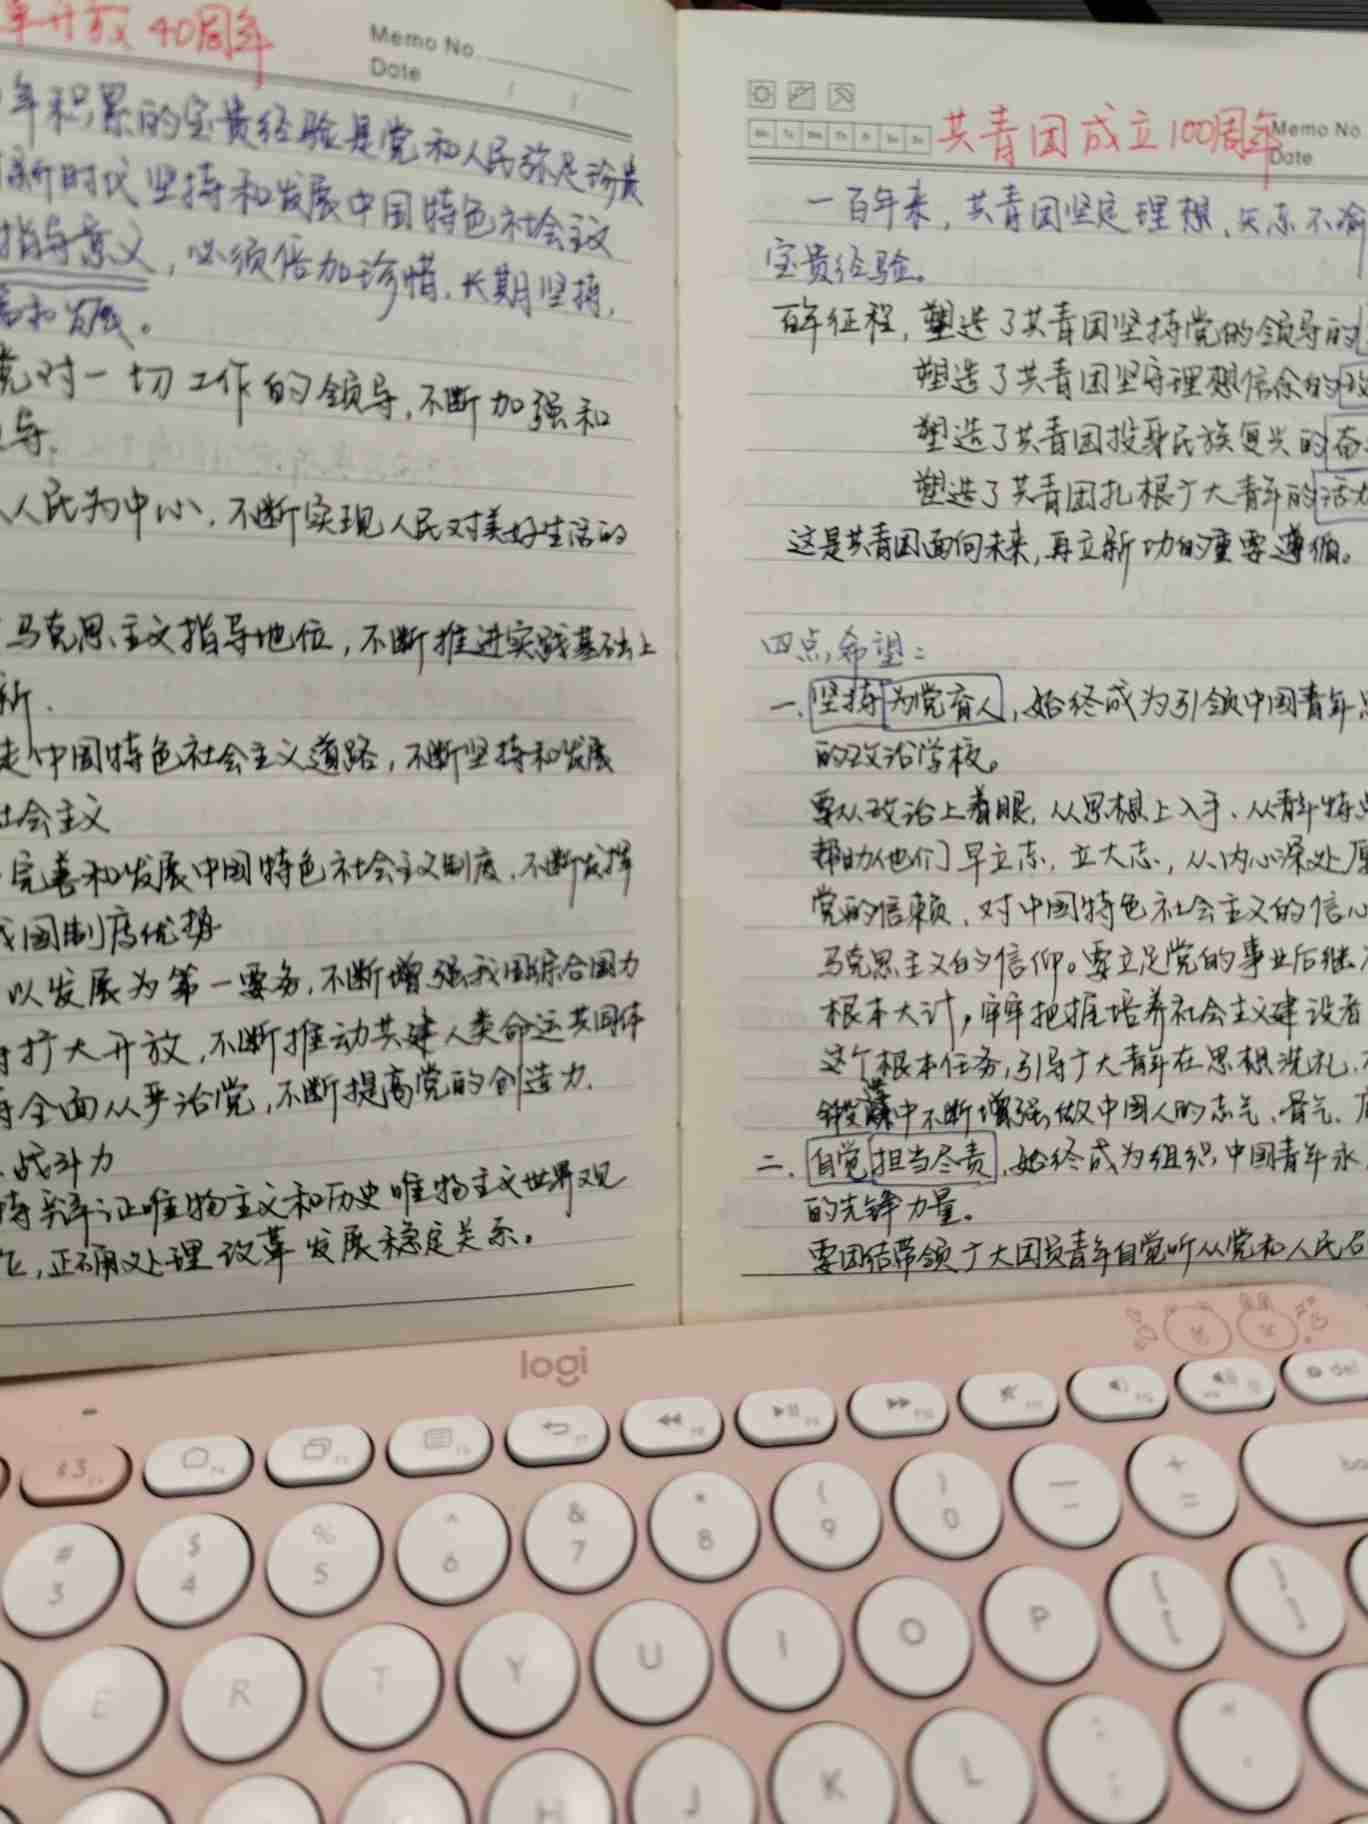 开放 40周年
Memo No.
Date
年积累的宝贵经验是党和人民弥足珍贵
新时代坚持和发展中国特色社会主义
指导意义，必须倍加珍惜、长期坚持，
和发展。
党对一切工作的领导，不断加强和
导.
人民为中心，不断实现人民对美好生活的
马克思主义指导地位，不断推进实践基础上
新.
走中国特色社会主义道路，不断坚持和发展
社会主义
完善和发展中国特色社会主义制度，不断发挥
我国制度优势
以发展为第一要务，不断增强我国综合国力
扩大开放，不断推动共建人类命运共同体
全面从严治党，不断提高党的创造力、
、战斗力
持辩证唯物主义和历史唯物主义世界观
，正确处理改革发展稳定关系。
共青团成立100周年
Memo No.
Date
一百年来，共青团坚定理想、矢志不渝
宝贵经验。
百年征程，塑造了共青团坚持党的领导的
塑造了共青团坚守理想信念的政
塑造了共青团投身民族复兴的奋
塑造了共青团扎根广大青年的活力
这是共青团面向未来，再立新功的重要遵循。
四点希望：
一、坚持为党育人，始终成为引领中国青年思
的政治学校。
要从政治上着眼，从思想上入手、从青年特点
帮助他们早立志，立大志，从内心深处厚
党的信赖、对中国特色社会主义的信心
马克思主义的信仰。要立足党的事业后继
根本大计，牢牢把握培养社会主义建设者
这个根本任务，引导广大青年在思想洗礼、
中不断增强做中国人的志气、骨气、底
二、自觉担当尽责，始终成为组织中国青年永
的先锋力量。
要团结带领广大团员青年自觉听从党和人民召
logi
del
# 3
$ 4
% 5
^ 6
& 7
* 8
( 9
) 0
— -
+ =
E R T Y U I O P [ ]
H J K L